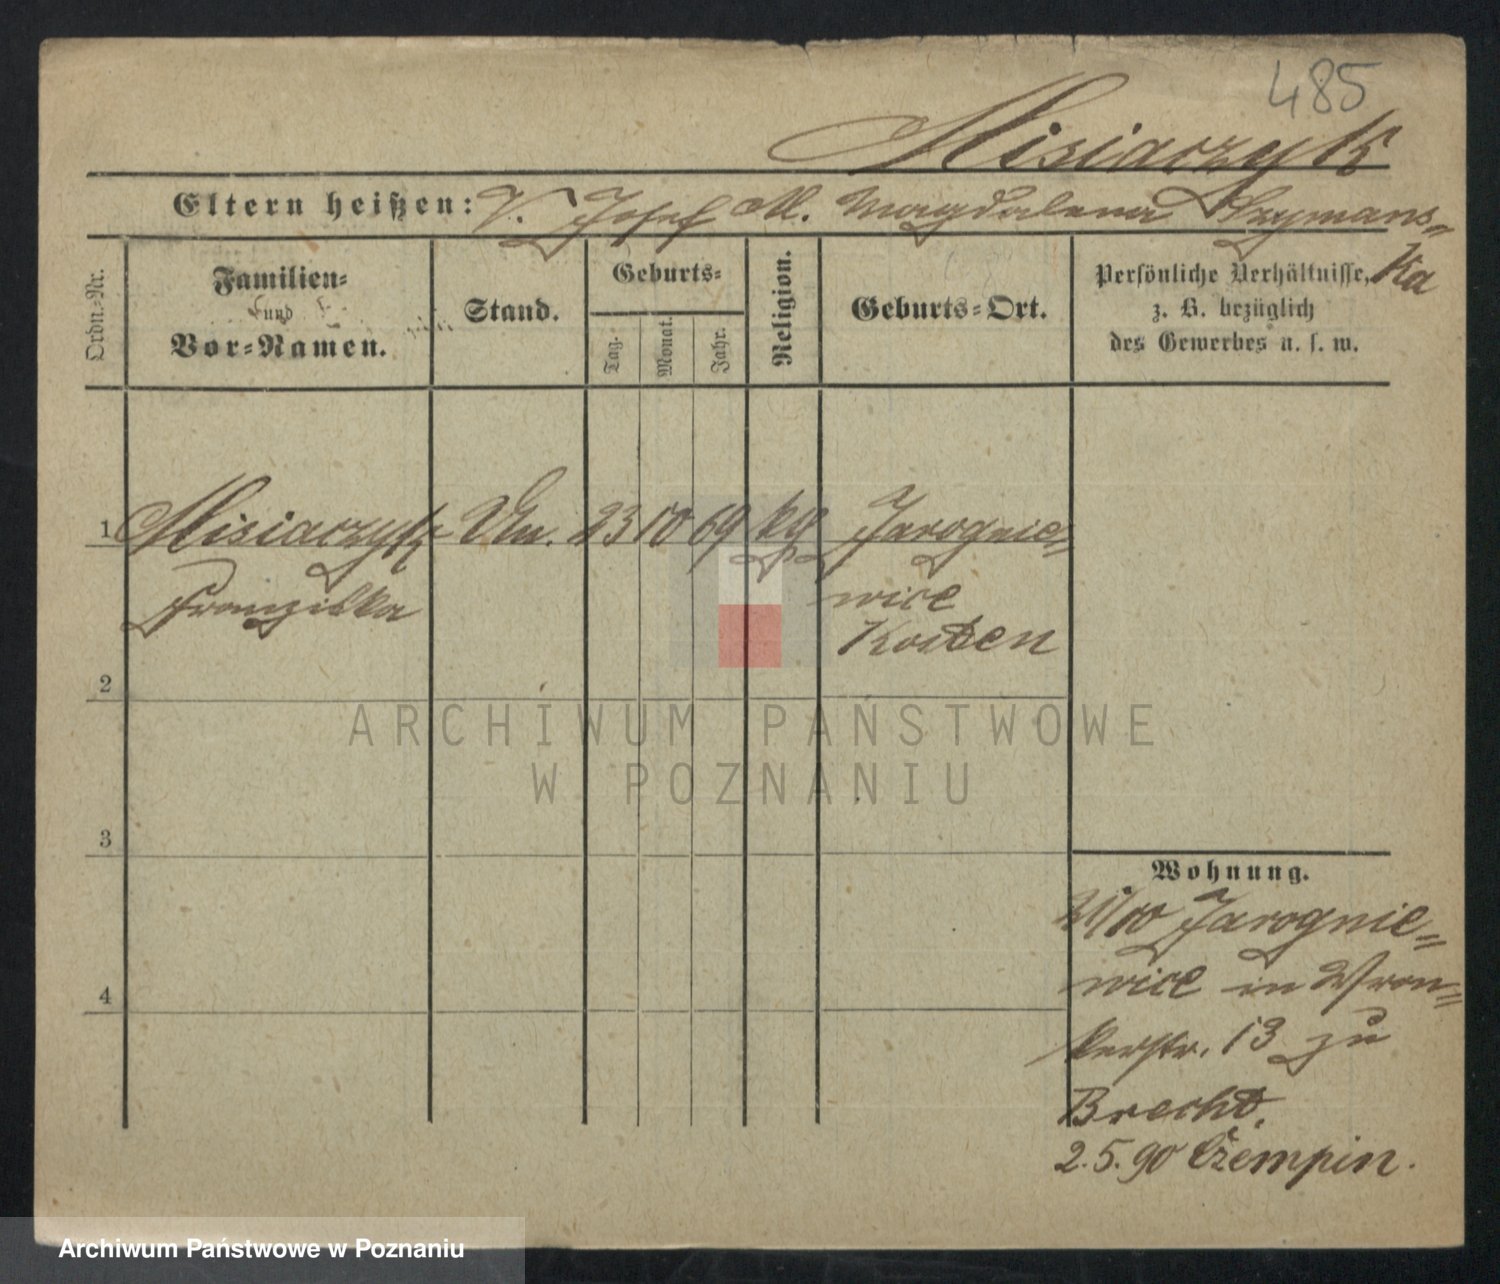 485
Misiaczyk
Eltern heißen: V. Josef M. Magdalena Szymans-
ka
Ordn.-Nr.
Familien-
und
Vor-Namen.
Stand.
Geburts-
Tag.
Monat.
Jahr.
Religion.
Geburts-Ort.
Persönliche Verhältnisse,
z. B. bezüglich
des Gewerbes u. s. w.
1 Misiaczyk 23 10 69 Jarognie-
Franziska wice
Kosten
2
3
4
ARCHIWUM PAŃSTWOWE
W POZNANIU
Wohnung.
Jarognie-
wice in Wron-
kerstr. 13 zu
Brecht.
2.5.90 Czempin.
Archiwum Państwowe w Poznaniu